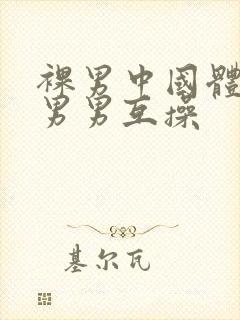 裸男中國體
男男互操
基尔瓦